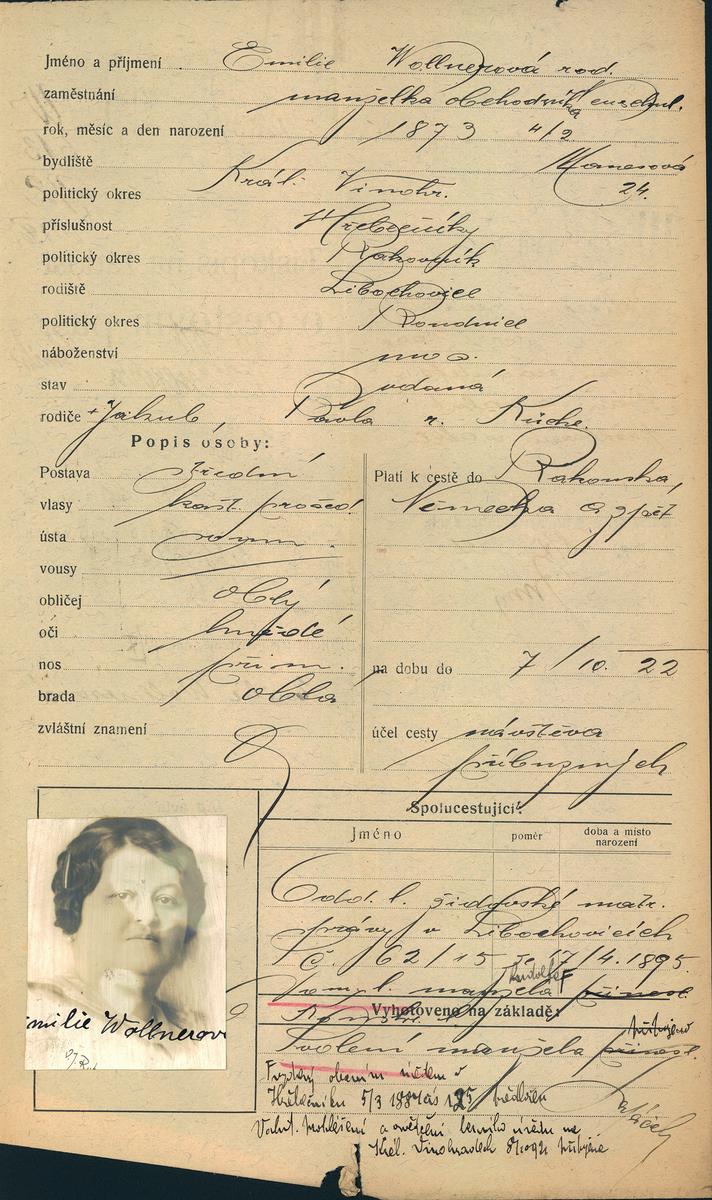 Jméno a příjmení Emilie Wollnerová rod.
zaměstnání manželka obchodníka
rok, měsíc a den narození 1873 4/2
bydliště Manesová
politický okres Král. Vinohr. 24.
příslušnost Hřebečníky
politický okres Rakovník
rodiště Libochovice
politický okres Roudnice
náboženství mos.
stav vdaná
rodiče + Jakub, Pavla r.
Popis osoby:
Postava střední
vlasy kašt. prošed.
ústa
vousy
obličej oblý
oči hnědé
nos přim.
brada oblá
zvláštní znamení
Platí k cestě do Rakouska,
Německa a zpět
na dobu do 7/10. 22
účel cesty návštěva
příbuzných
Spolucestující:
Jméno poměr doba a místo narození
Odd. l. židovské matr.
správy v Libochovicích
č. 62/15 17/4. 1895.
l. manžela Rudolfa
Vyhotoveno na základě:
Svolení manžela
obecním úřadem v
5/3 1887 čís 125 předložen
prohlášení a
Král. Vinohradech
Emilie Wollnerov